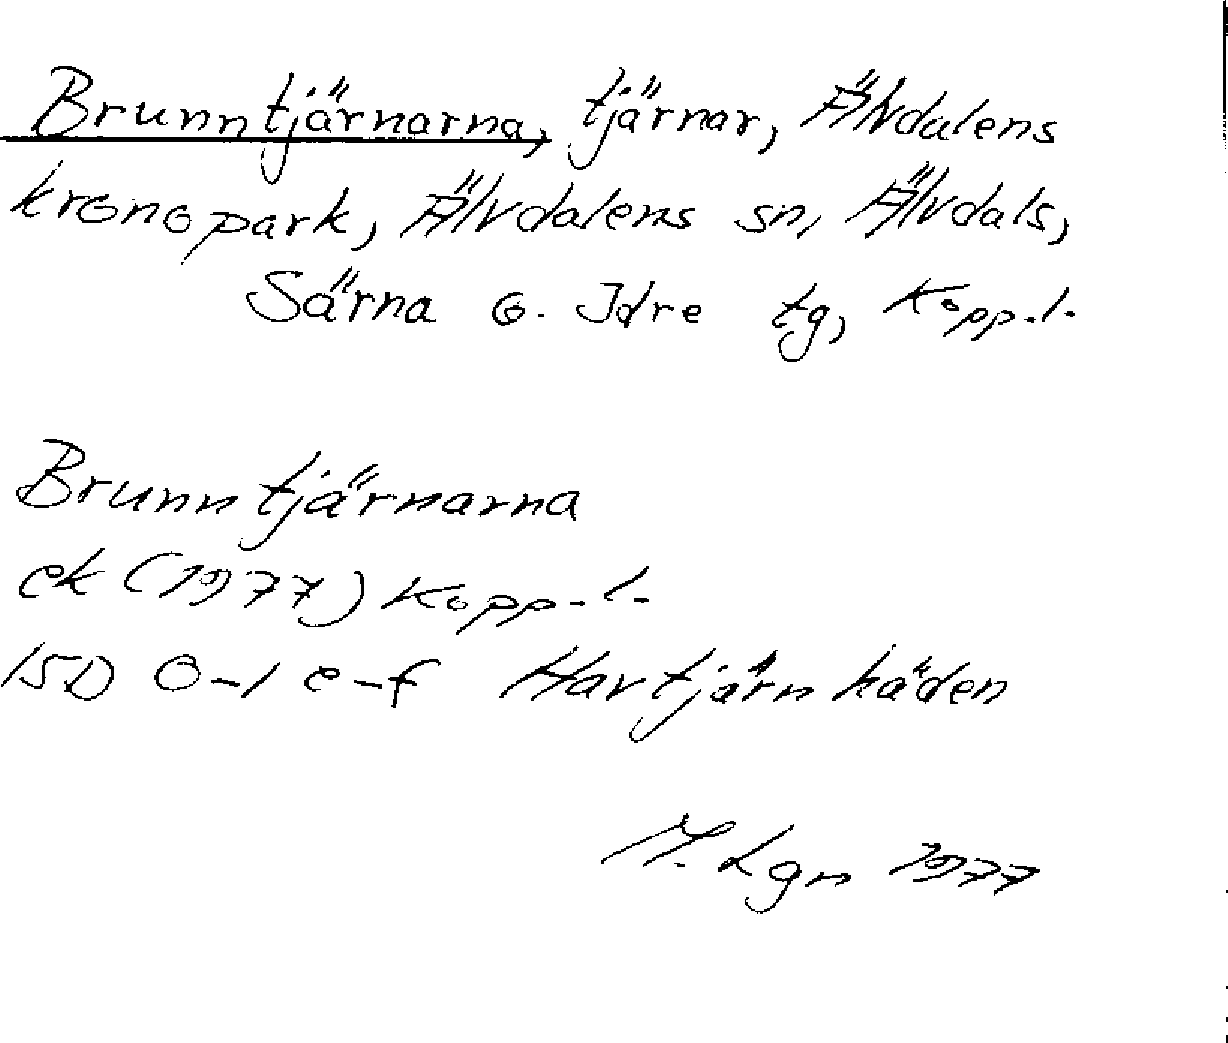 Brunntjärnarna, tjärnar, Älvdalens
kronopark, Älvdalens sn, Älvdals,
Särna o. Idre tg, Kopp.l.
Brunntjärnarna
ek (1977) Kopp.l.
15D 0-1 e-f Hartjärnhäden
M. Lgn 1977